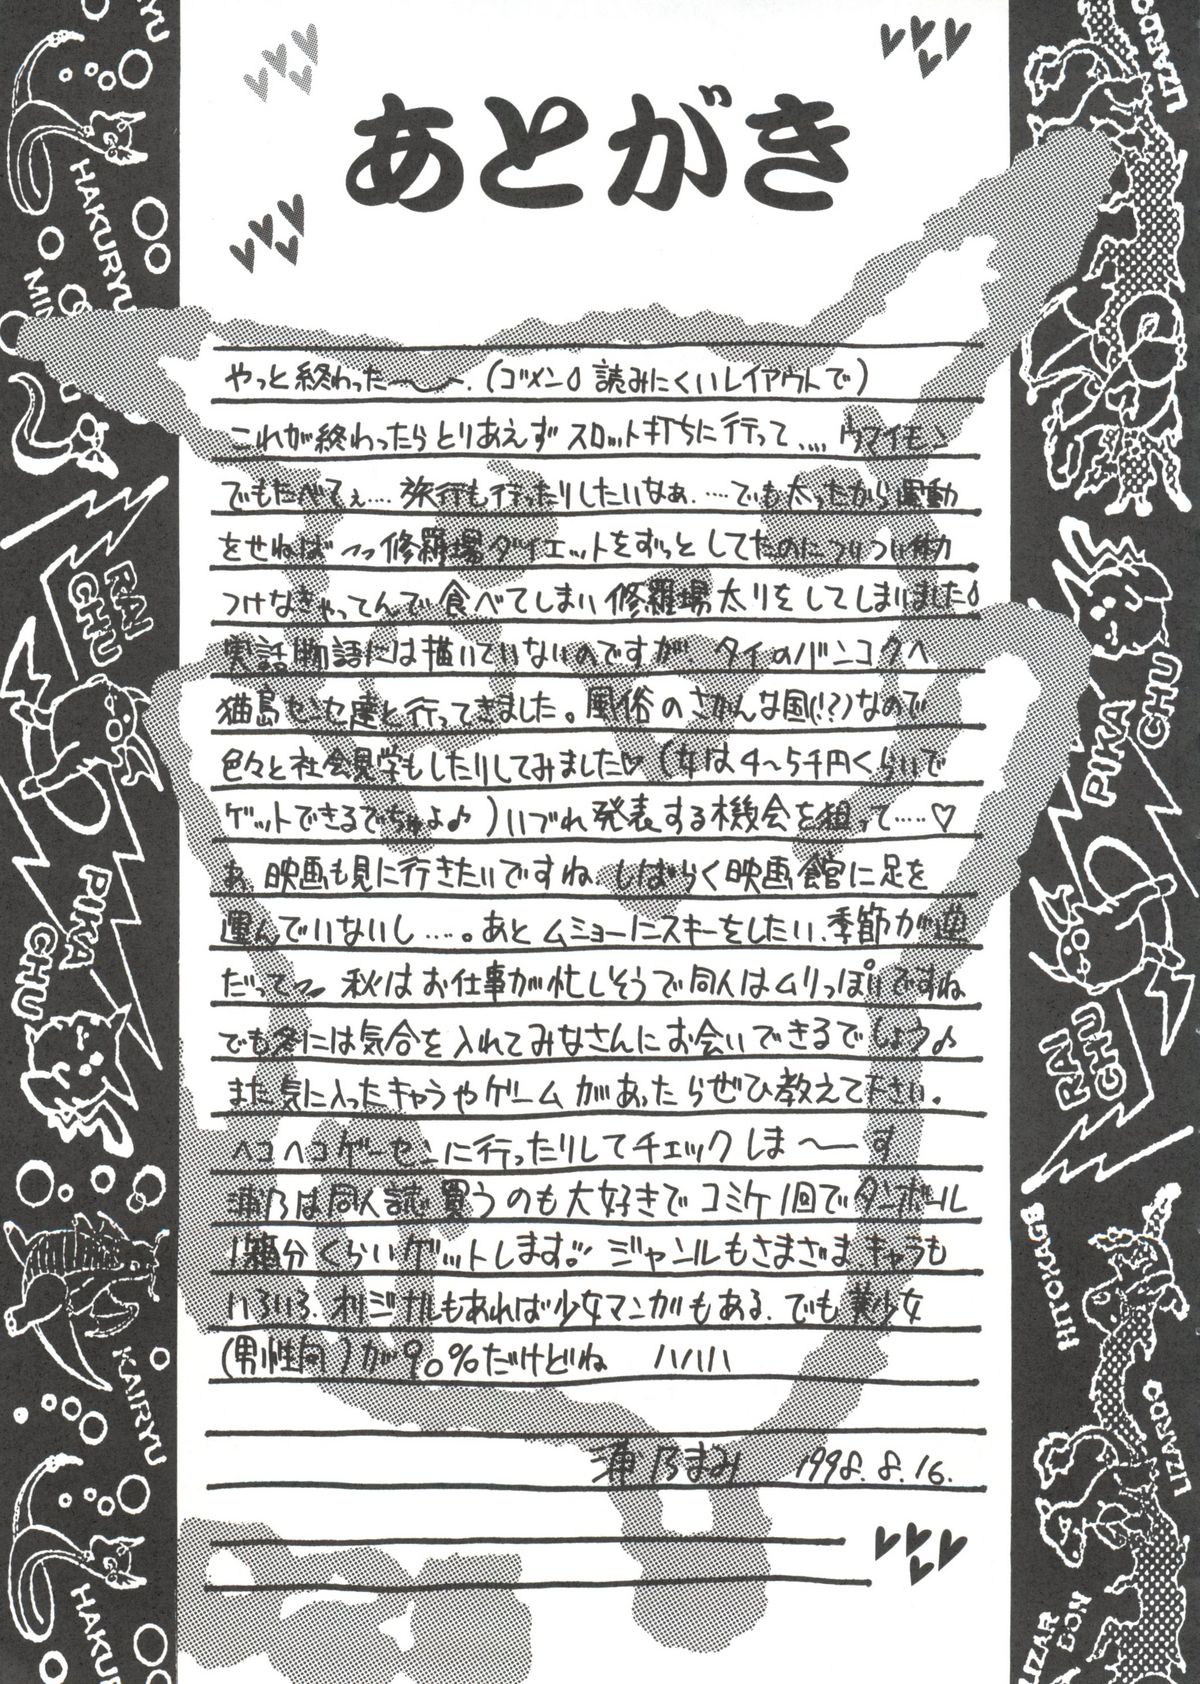 あとがき
やっと終わった〜〜.(ゴメン 読みにくいレイアウトで)
これが終わったらとりあえず スロット打ちに行って.... ウマイモン
でもたべてぇ.... 旅行も行ったりしたいなぁ.....でも太ったから運動
をせねばっっ 修羅場ダイエットをずっと してたのについつい
つけなきゃってんで 食べてしまい 修羅場太りをしてしまいました
実話物語には描いていないのですが、タイのバンコクへ
猫島センセ達と行ってきました。風俗のさかんな国(!?)なので
色々と社会見学もしたりしてみました♡(女は4〜5千円くらいで
ゲットできるでちゅよ♪)いづれ発表する機会を狙って.....♡
あ、映画も見に行きたいですね.しばらく映画館に足を
運んでいないし.....。あとムショーにスキーをしたい、季節が逆
だってっ 秋はお仕事が忙しそうで同人はムリっぽいですね
でも冬には気合を入れてみなさんにお会いできるでしょう♪
また気に入ったキャラやゲームがあったらぜひ教えて下さい。
ヘコヘコゲーセンに行ったりしてチェックしま〜〜す
浦乃は同人誌買うのも大好きでコミケ1回でダンボール
1箱分くらいゲットします!! ジャンルもさまざまキャラも
いろいろ.オリジナルもあれば少女マンガもある.でも美少女
(男性向)が90%だけどね ハハハハ
浦乃まみ 1998.8.16.
HAKURYU
RAI
CHU
PIKA
CHU
KAIRYU
HAKU
LIZARDO
PIKA
CHU
RAI
CHU
HITOKAGE
LIZARDO
LIZAR
DON